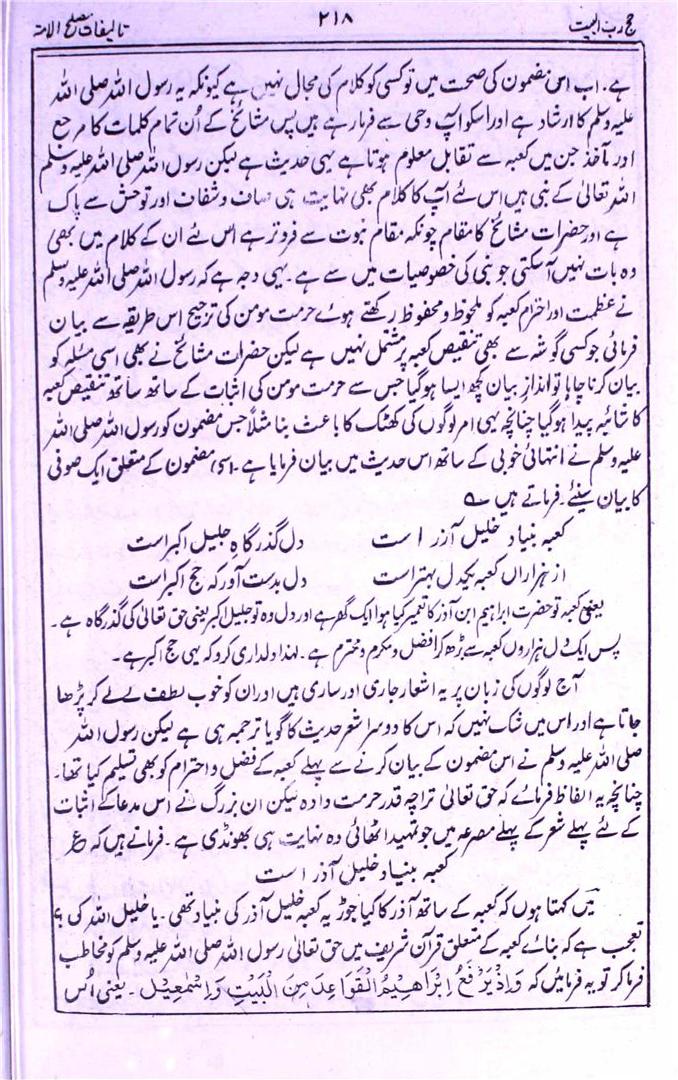 حج رب البیت ۲۱۸ تالیفات مصلح الامۃ
ہے۔ اب اس مضمون کی صحت میں تو کسی کو کلام کی مجال نہیں ہے کیونکہ یہ رسول اللہ صلی اللہ
علیہ وسلم کا ارشاد ہے اور اسکو آپ وحی سے فرما رہے ہیں پس مشائخ کے اُن تمام کلمات کا مرجع
اور مآخذ جن میں کعبہ سے تقابل معلوم ہوتا ہے یہی حدیث ہے لیکن رسول اللہ صلی اللہ علیہ وسلم
اللہ تعالیٰ کے نبی ہیں اس لئے آپ کا کلام بھی نہایت ہی صاف و شفاف اور توحش سے پاک
ہے اور حضرات مشائخ کا مقام چونکہ مقام نبوت سے فروتر ہے اس لئے ان کے کلام میں بھی
وہ بات نہیں آسکتی جو نبی کی خصوصیات میں سے ہے۔ یہی وجہ ہے کہ رسول اللہ صلی اللہ علیہ وسلم
نے عظمت اور احترام کعبہ کو ملحوظ و محفوظ رکھتے ہوئے حرمت مومن کی ترجیح اس طریقہ سے بیان
فرمائی جو کسی گوشہ سے بھی تنقیص کعبہ پر مشتمل نہیں ہے لیکن حضرات مشائخ نے بھی اسی مسئلہ کو
بیان کرنا چاہا تو انداز بیان کچھ ایسا ہوگیا جس سے حرمت مومن کی اثبات کے ساتھ ساتھ تنقیص کعبہ
کا شائبہ پیدا ہوگیا چنانچہ یہی امر لوگوں کی کھٹک کا باعث بنا مثلاً جس مضمون کو رسول اللہ صلی اللہ
علیہ وسلم نے انتہائی خوبی کے ساتھ اس حدیث میں بیان فرمایا ہے۔ اسی مضمون کے متعلق ایک صوفی
کا بیان سنئے۔ فرماتے ہیں ؎
کعبہ بنیاد خلیل آزر است دل گذر گاہِ جلیل اکبر است
از ہزاراں کعبہ یکدل بہتر است دل بدست آور کہ حج اکبر است
یعنی کعبہ تو حضرت ابراہیم ابن آذر کا تعمیر کیا ہوا ایک گھر ہے اور دل وہ تو جلیل اکبر یعنی حق تعالیٰ کی گذر گاہ ہے۔
پس ایک دل ہزاروں کعبہ سے بڑھ کر افضل و مکرم و محترم ہے۔ لہذا دلداری کرو کہ یہی حج اکبر ہے۔
آج لوگوں کی زبان پر یہ اشعار جاری اور ساری ہیں اور ان کو خوب لطف لے لے کر پڑھا
جاتا ہے اور اس میں شک نہیں کہ اس کا دوسرا شعر حدیث کا گویا ترجمہ ہی ہے لیکن رسول اللہ
صلی اللہ علیہ وسلم نے اس مضمون کے بیان کرنے سے پہلے کعبہ کے فضل و احترام کو بھی تسلیم کیا تھا۔
چنانچہ یہ الفاظ فرمائے کہ حق تعالیٰ ترا چہ قدر حرمت دادہ لیکن ان بزرگ نے اس مدعا کے اثبات
کے لئے پہلے شعر کے پہلے مصرعہ میں جو تمہید اٹھائی وہ نہایت ہی بھونڈی ہے۔ فرماتے ہیں کہ ؏
کعبہ بنیاد خلیل آذر است
میں کہتا ہوں کہ کعبہ کے ساتھ آذر کا کیا جوڑ یہ کعبہ خلیل آذر کی بنیاد تھی۔ یا خلیل اللہ کی؟
تعجب ہے کہ بنائے کعبہ کے متعلق قرآن شریف میں حق تعالیٰ رسول اللہ صلی اللہ علیہ وسلم کو مخاطب
فرما کر تو یہ فرمائیں کہ وَاِذْ یَرْفَعُ اِبْرَاھِیْمُ الْقَوَاعِدَ مِنَ الْبَیْتِ وَاِسْمٰعِیْلُ۔ یعنی اُس